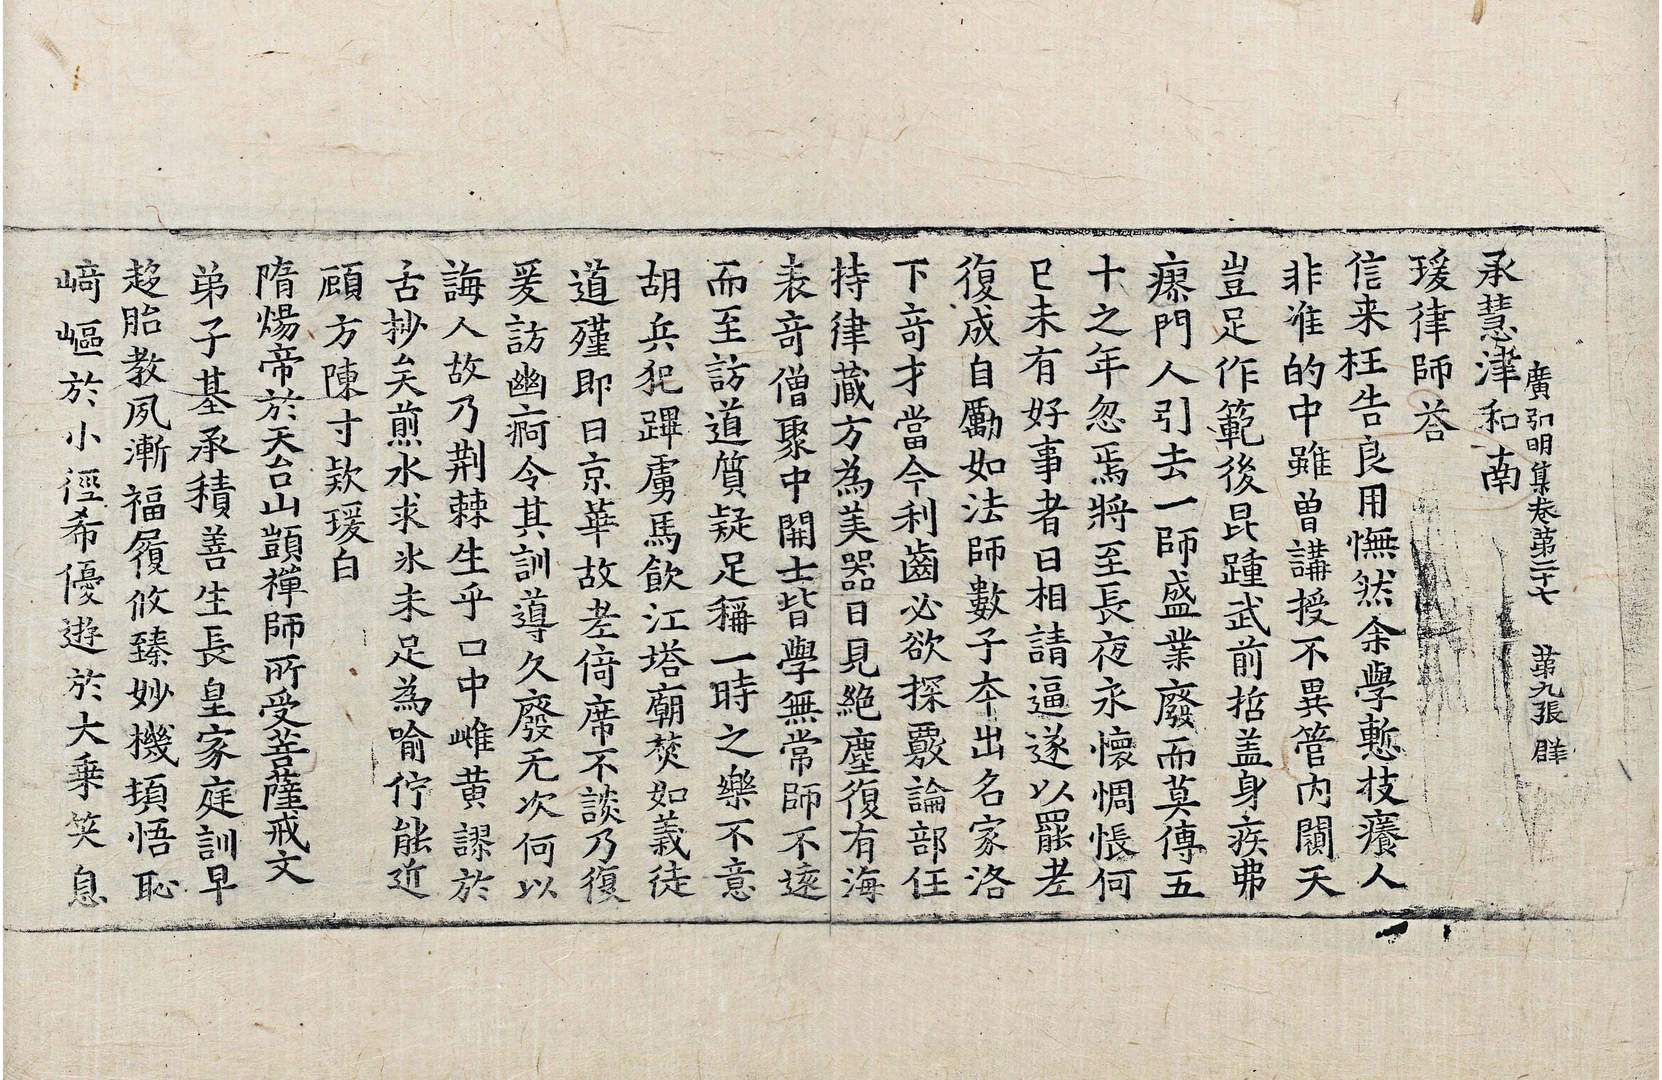 廣弘明集卷第二十七　第九張　群
承慧津和南
瑗律師荅
信来枉告良用憮然余學慙技癢人
非准的中雖曽講授不異管内闚天
豈足作範後昆踵武前哲盖身疾弗
瘳門人引去一師盛業廢而莫傳五
十之年忽焉將至長夜永懷惆悵何
已未有好事者日相請逼遂以罷老
復成自勵如法師數子夲出名家洛
下竒才當今利齒必欲探覈論部任
持律藏方為美器日見絶塵復有海
表竒僧聚中開士皆學無常師不遠
而至訪道質疑足稱一時之樂不意
胡兵犯蹕虜馬飲江塔廟焚如義徒
道殣即日京華故老倚席不談乃復
爰訪幽痾令其訓導久廢无次何以
誨人故乃荆棘生乎口中雌黄謬於
舌抄矣煎水求氷未足為喻佇能近
顧方陳寸欵瑗白
隋煬帝於天台山顗禪師所受菩薩戒文
弟子基承積善生長皇家庭訓早
趍胎教夙漸福履攸臻妙機頓悟恥
﨑嶇於小徑希優遊於大乗笑息